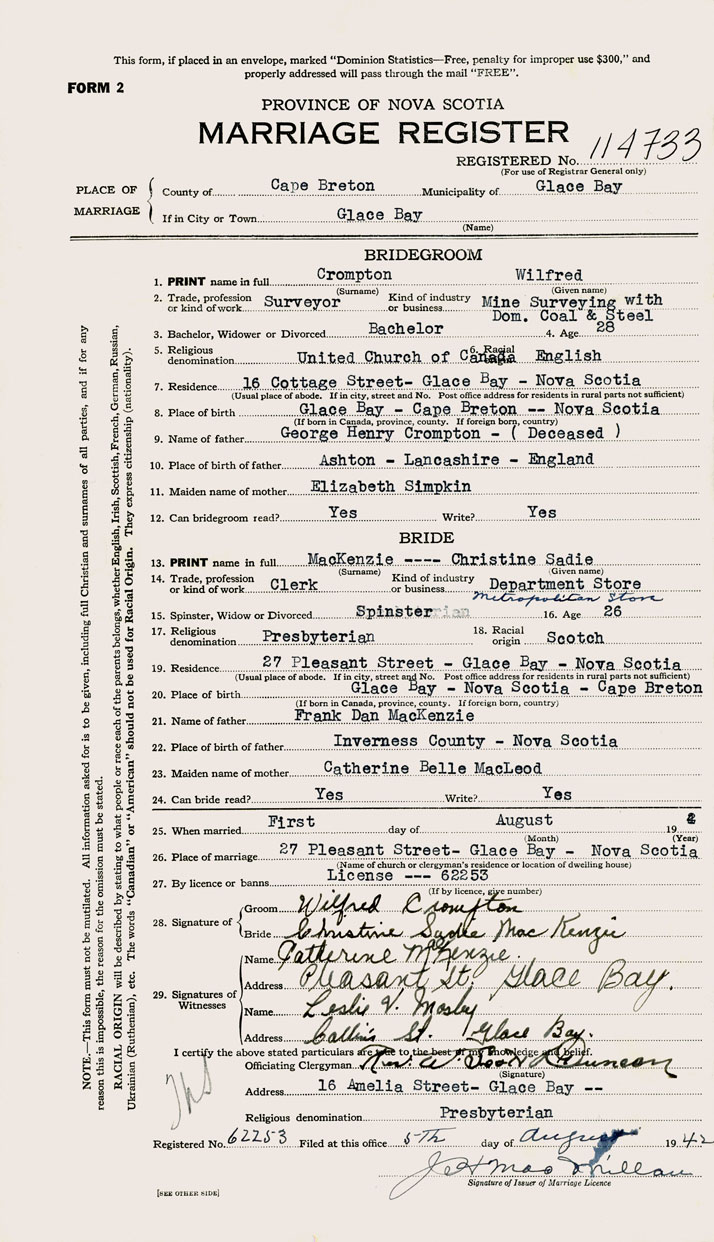 This form, if placed in an envelope, marked “Dominion Statistics—Free, penalty for improper use $300,” and
properly addressed will pass through the mail “FREE”.
FORM 2
PROVINCE OF NOVA SCOTIA
MARRIAGE REGISTER
REGISTERED No. 114733
(For use of Registrar General only)
PLACE OF MARRIAGE
County of Cape Breton Municipality of Glace Bay
If in City or Town Glace Bay
(Name)
BRIDEGROOM
1. PRINT name in full Crompton Wilfred
(Surname) (Given name)
2. Trade, profession or kind of work Surveyor Kind of industry or business Mine Surveying with
Dom. Coal & Steel
3. Bachelor, Widower or Divorced Bachelor 4. Age 28
5. Religious denomination United Church of Canada 6. Racial English
7. Residence 16 Cottage Street- Glace Bay - Nova Scotia
(Usual place of abode. If in city, street and No. Post office address for residents in rural parts not sufficient)
8. Place of birth Glace Bay - Cape Breton -- Nova Scotia
(If born in Canada, province, county. If foreign born, country)
9. Name of father George Henry Crompton - ( Deceased )
10. Place of birth of father Ashton - Lancashire - England
11. Maiden name of mother Elizabeth Simpkin
12. Can bridegroom read? Yes Write? Yes
BRIDE
13. PRINT name in full MacKenzie ---- Christine Sadie
(Surname) (Given name)
14. Trade, profession or kind of work Clerk Kind of industry or business Department Store
Metropolitan Store
15. Spinster, Widow or Divorced Spinster 16. Age 26
17. Religious denomination Presbyterian 18. Racial origin Scotch
19. Residence 27 Pleasant Street - Glace Bay - Nova Scotia
(Usual place of abode. If in city, street and No. Post office address for residents in rural parts not sufficient)
20. Place of birth Glace Bay - Nova Scotia - Cape Breton
(If born in Canada, province, county. If foreign born, country)
21. Name of father Frank Dan MacKenzie
22. Place of birth of father Inverness County - Nova Scotia
23. Maiden name of mother Catherine Belle MacLeod
24. Can bride read? Yes Write? Yes
25. When married First day of August 19 2
(Month) (Year)
26. Place of marriage 27 Pleasant Street- Glace Bay - Nova Scotia
(Name of church or clergyman's residence or location of dwelling house)
27. By licence or banns License --- 62253
(If by licence, give number)
28. Signature of
Groom Wilfred Crompton
Bride Christine Sadie MacKenzie
29. Signatures of Witnesses
Name Catherine McKenzie.
Address Pleasant St. Glace Bay.
Name Leslie V. Mosley
Address St. Glace Bay.
I certify the above stated particulars are true to the best of my knowledge and belief.
Officiating Clergyman Rev. A. Duncan
(Signature)
Address 16 Amelia Street- Glace Bay --
Religious denomination Presbyterian
Registered No. 62253 Filed at this office 5th day of August 1942
J H MacMillan
Signature of Issuer of Marriage Licence
[SEE OTHER SIDE]
NOTE.—This form must not be mutilated. All information asked for is to be given, including full Christian and surnames of all parties, and if for any
reason this is impossible, the reason for the omission must be stated.
RACIAL ORIGIN will be described by stating to what people or race each of the parents belongs, whether English, Irish, Scottish, French, German, Russian,
Ukrainian (Ruthenian), etc. The words “Canadian” or “American” should not be used for Racial Origin. They express citizenship (nationality).